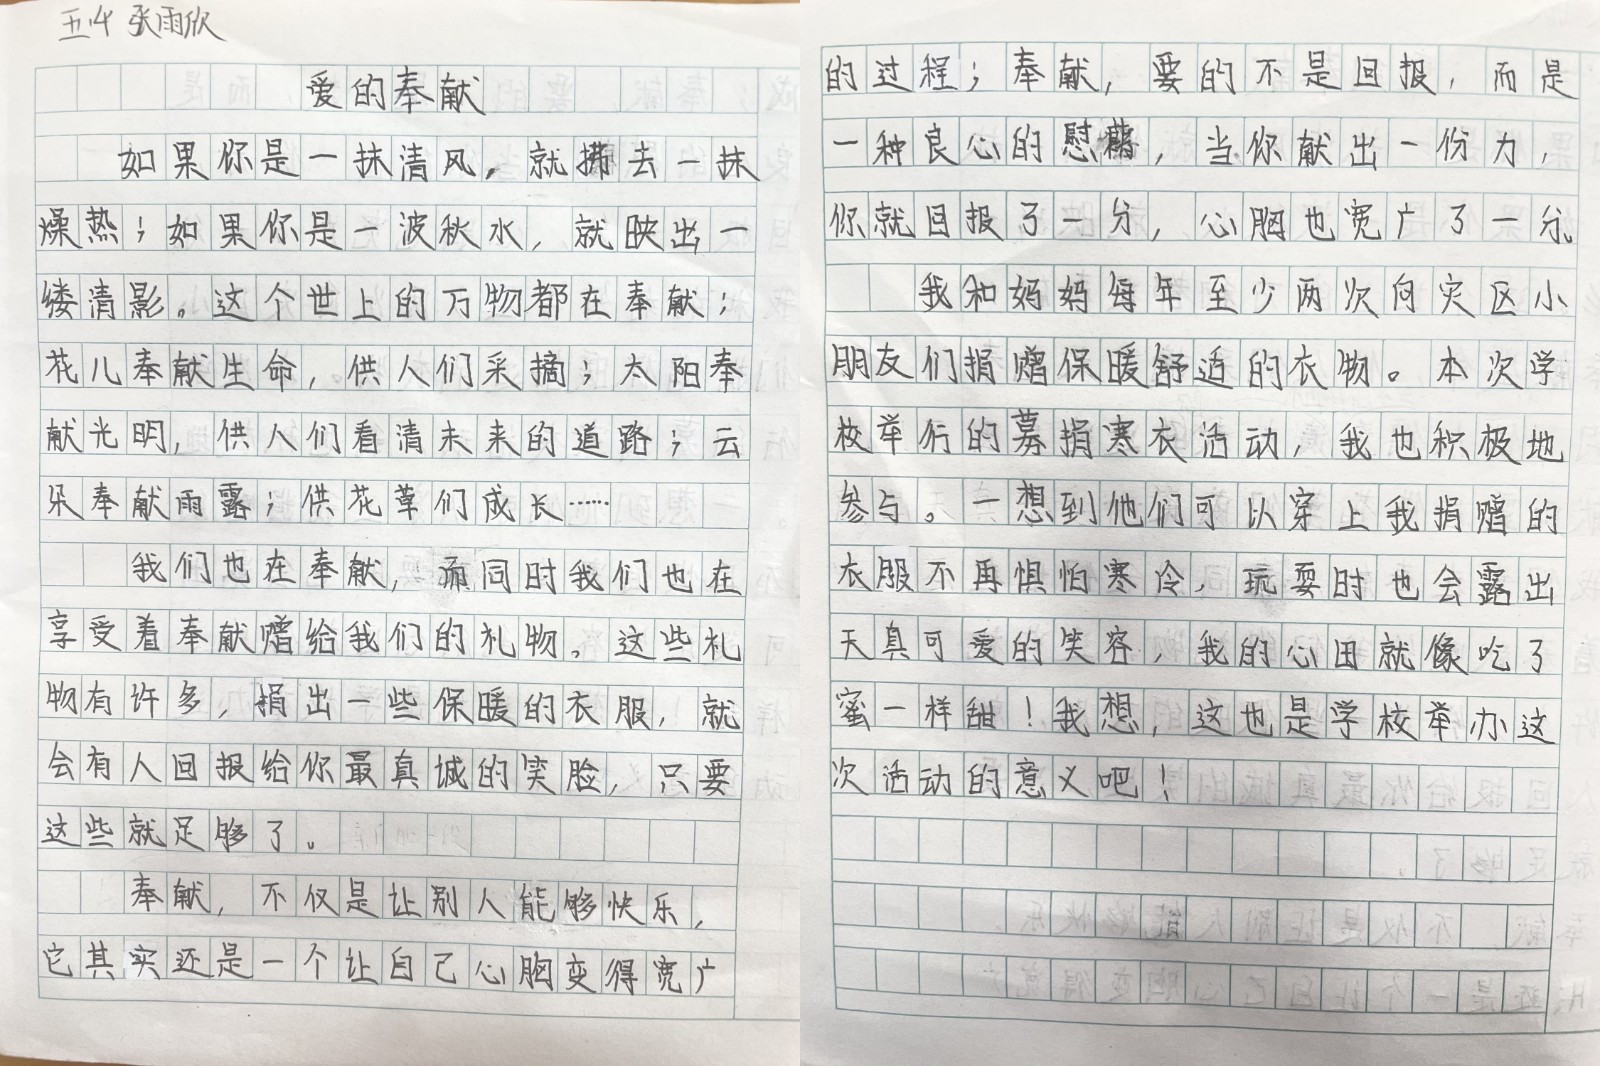 五4 张雨欣
爱的奉献
如果你是一抹清风，就拂去一抹
燥热；如果你是一波秋水，就映出一
缕清影。这个世上的万物都在奉献：
花儿奉献生命，供人们采摘；太阳奉
献光明，供人们看清未来的道路；云
朵奉献雨露；供花草们成长……
我们也在奉献，而同时我们也在
享受着奉献赠给我们的礼物。这些礼
物有许多，捐出一些保暖的衣服，就
会有人回报给你最真诚的笑脸，只要
这些就足够了。
奉献，不仅是让别人能够快乐，
它其实还是一个让自己心胸变得宽广
的过程；奉献，要的不是回报，而是
一种良心的慰藉，当你献出一份力，
你就回报了一分，心胸也宽广了一分。
我和妈妈每年至少两次向灾区小
朋友们捐赠保暖舒适的衣物。本次学
校举行的募捐寒衣活动，我也积极地
参与。一想到他们可以穿上我捐赠的
衣服不再惧怕寒冷，玩耍时也会露出
天真可爱的笑容，我的心田就像吃了
蜜一样甜！我想，这也是学校举办这
次活动的意义吧！